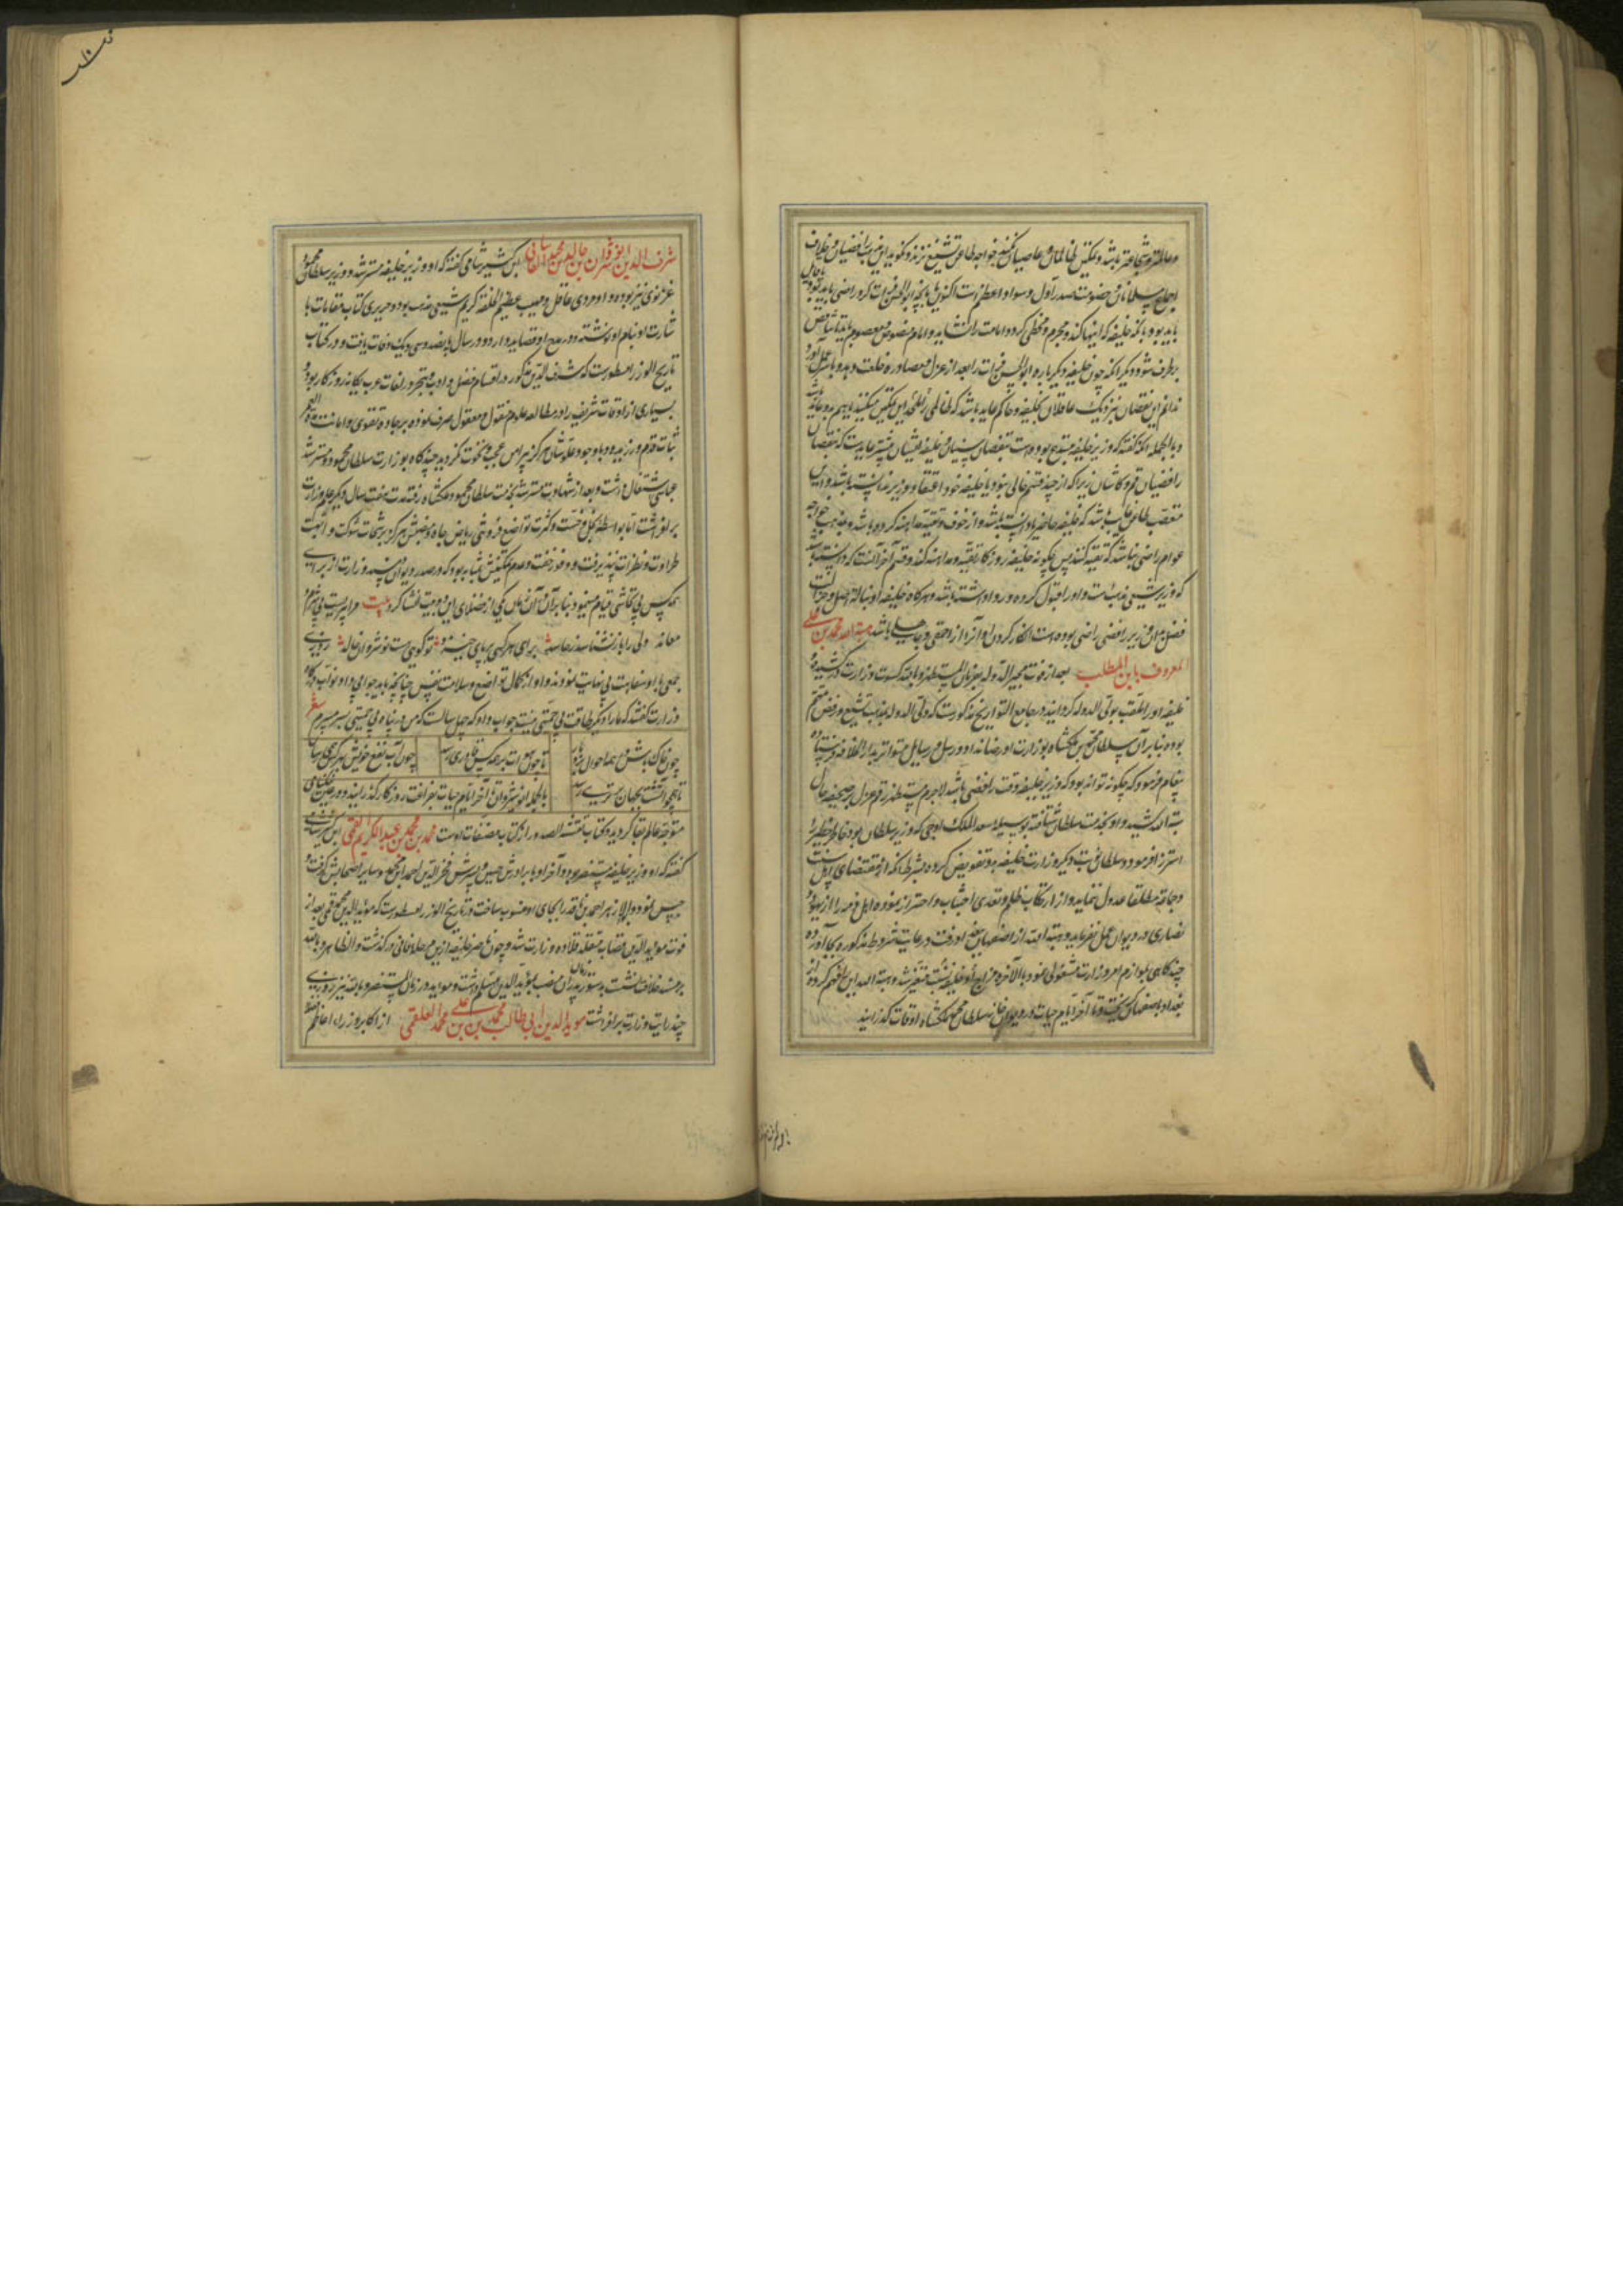 و عالمتر و شجاعتر باشد و تمکین ظالمان و عاصیان نکند خواجه طاعن تشنیع نزند و نگوید این مذهب رافضیان و خلاف
اجماع مسلمانان و خصومت صدر اول و سواد اعظم است اکنون بایستی ابوالحسن فرات کرد راضی باید بود یا حال
باید بود بآنکه خلیفه که اینها کند مجرم و مخطی گردد و امامت را نشاید و امام منصوص معصوم باید تا شناقص
برطرف شود و دیگر آنکه چون خلیفه دیگر باره ابوالحسن فرات را بعد از عزل و مصادره خلعت دهد و باسر عمل آورد
ندانم این نقصان بنزدیک عاقلان بخلیفه و حاکم عاید باشد که ظالمی را تمکین میکند یا هم بدو عاید باشد
و بالجمله آنکه گفته که وزیر خلیفه مبتدع بوده است بنقصان سنیان و خلیفه ایشان بیشتر عاید است که بنقصان
رافضیان قم و کاشان زیرا که از چند قسم خالی نبود یا خلیفه خود اعتقاد وزیر ندانسته باشد و این
متعصب طاعن غایب باشد که خلیفه حاضر یا دانسته باشد و از خوف و تقیه مداهنه کرده باشد و مذهب خواجه
عوام راضی نباشد که تقیه کنند پس چگونه خلیفه روزگار تقیه و مداهنه کند و قسم آخر آنست که دانسته باشد
که وزیر شیعی مذهب است و او را قبول کرده و روا داشته باشد و هرگاه خلیفه او با آن اصل و جزالت
فضل بدان وزیر رافضی راضی بوده است انکار کردن او آنرا از احمقی و جاهلی باشد هبة الله محمد بن علی
المعروف بابن المطلب بعد از فوت مجیر الدوله بفرمان المستظهر بالله کسوت وزارت در پوشید و
خلیفه او را ملقب بولی الدوله گردانید و در جامع التواریخ مذکور است که ولی الدوله بمذهب تشیع و رفض متهم
بوده بنابر آن سلطان محمد بن ملکشاه بوزارت او رضا نداد و رسل و رسایل متواتر بدار الخلافه فرستاده
پیغام فرمود که چگونه تواند بود که وزیر خلیفه وقت رافضی باشد لاجرم مستظهر رقم عزل بر صحیفه حال
هبة الله کشید و او بخدمت سلطان شتافته بوسیله سعد الملک آوجی که وزیر سلطان بود خاطر خطیر را
استرزا فرمود و سلطان نوبت دیگر وزارت خلیفه بدو تفویض کرده بشرط آنکه از مقتضای مذهب اهل سنت
و جماعت مطلقا عدول ننماید و از ارتکاب ظلم و تعدی اجتناب و احتراز نموده اهل ذمه را از یهود و
نصاری در دیوان عمل نفرماید و هبة الله از اصفهان ببغداد رفت و رعایت شروط مذکوره بجا آورده
چند گاهی بلوازم امر وزارت مشغولی نمود بالآخره مزاج خلیفه نسبت باو متغیر شد و هبة الله این را فهم کرده از
بغداد باصفهان گریخت و تا آخر ایام حیات در دیوان خانه سلطان محمد ملکشاه اوقات گذرانید
شرف الدین ابو نصر نوشیروان بن خالد بن محمد الکاشانی ابن کثیر شامی گفته که او وزیر خلیفه مسترشد و وزیر سلطان محمود
غزنوی نیز بوده و او مردی عاقل و مهیب عظیم الخلقه کریم شیعی مذهب بود و حریری کتاب مقامات با
شارت او بنام او نوشته و در مدح او قصاید وارد و در سال پانصد و سی و یک وفات یافت و در کتاب
تاریخ الوزرا مسطور است که شرف الدین مذکور در اقسام فضل و ادب و تبحر در لغات عرب یگانه روزگار بود و
بسیاری از اوقات شریف را در مطالعه علوم منقول و معقول صرف نموده بر جاده تقوی و امانت
ثبات قدم ورزیده و با وجود علو شان هرگز پیرامن عجب و نخوت نگردید چند گاه بوزارت سلطان محمود و مسترشد
عباسی اشتغال داشت و بعد از شهادت مسترشد بخدمت سلطان محمود ملکشاه رفته مدت هفت سال دیگر علم وزارت
برافراشت اما بواسطه بخل و خست و کثرت تواضع و فروتنی ریاض جاه و منصبش هرگز برشحات شوکت و ابهت
طراوت و نظارت نپذیرفت و وفور خفت و عدم تمکینش بمثابه بود که در صدر دیوان و مسند وزارت از برای
همه کس بی تحاشی قیام مینمود بنابر آن در آن زمان یکی از فضلای این دو بیت انشا کرد بیت مرا پیریست بی شرم و
معاند ولی را باز نشناسد ز حاسد برای هر کسی بر پای خیزد تو گویی هست نوشروان خالد روزی
جمعی با او سفاهت بی نهایت نمودند و او از کمال تواضع و سلامت نفس چنانچه باید جوابی نداد نواب درگاه
وزارت گفتند که ما را دیگر طاقت بی حمیتی نیست جواب داد که چهل سالست که من در پناه بی حمیتی بسر میبرم شعر
چون خاک باش در همه احوال بردبار
تا چون هوات بر همه کس قادری رسد
چون آب نفع خویش بهر کس همی رسان
تا همچو آتشت بجهان برتری رسد
بالجمله ابو نوشروان تا آخر ایام حیات بفراغت روزگار گذرانید و در حین
متوجه عالم بقا گردید و کتاب نفثة المصدور از کتاب مصنفات اوست محمد بن محمد بن عبد الکریم القمی ابن کثیر شامی
گفته که او وزیر خلیفه مستنصر بود و آخر او با برادرش حسن و پسرش فخر الدین احمد بن محمد و سایر اصحابش گرفت و
حبس نمود و ابو الازهر احمد بن ناقد را بجای او منصوب ساخت و در تاریخ الوزرا مسطور است که مؤید الدین محمد قمی بعد از
فوت مؤید الدین قصاب متقلد قلاده وزارت شد و چون ناصر خلیفه ازین مرحله فانی درگذشت و الظاهر بالله
بر مسند خلافت نشست بدستور زمان پدر آن منصب بمؤید الدین مسلم داشت و مؤید در زمان المستنصر بالله نیز روزی
چند رایت وزارت برافراشت مؤید الدین ابی طالب محمد بن علی بن محمد العلقمی از اکابر وزراء اعاظم